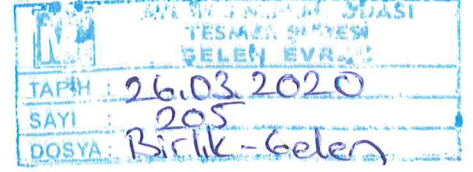 ODASI
GELEN EVRAK
TARİH : 26.03.2020
SAYI : 205
DOSYA : Birlik-Gelen